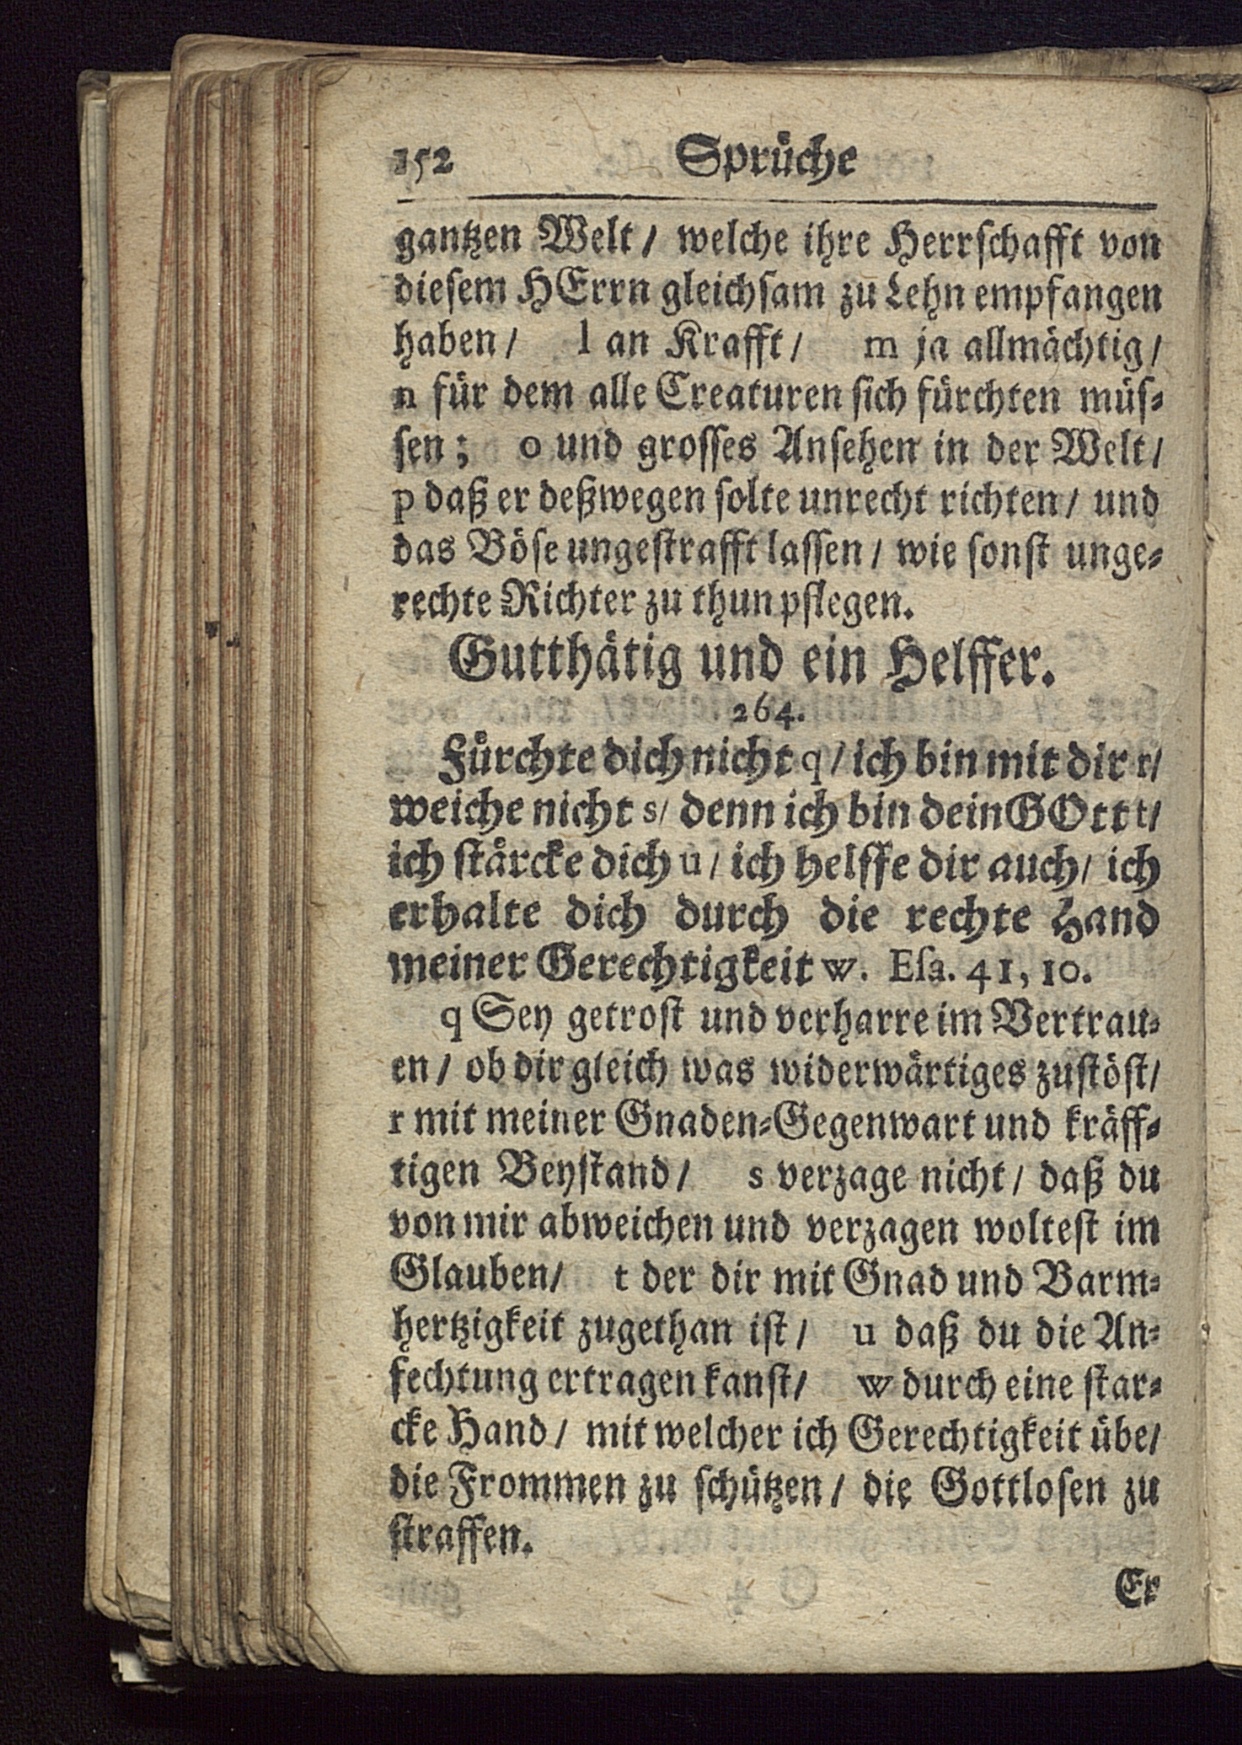 152 Sprüche
gantzen Welt / welche ihre Herrschafft von
diesem HErrn gleichsam zu Lehn empfangen
haben / l an Krafft / m ja allmächtig /
n für dem alle Creaturen sich fürchten müs-
sen ; o und grosses Ansehen in der Welt /
p daß er deßwegen solte unrecht richten / und
das Böse ungestrafft lassen / wie sonst unge-
rechte Richter zu thun pflegen.
Gutthätig und ein Helffer.
264.
Fürchte dich nicht q / ich bin mit dir r /
weiche nicht s / denn ich bin dein GOtt t /
ich stärcke dich u / ich helffe dir auch / ich
erhalte dich durch die rechte Hand
meiner Gerechtigkeit w. Esa. 41, 10.
q Sey getrost und verharre im Vertrau-
en / ob dir gleich was widerwärtiges zustöst /
r mit meiner Gnaden-Gegenwart und kräff-
tigen Beystand / s verzage nicht / daß du
von mir abweichen und verzagen woltest im
Glauben / t der dir mit Gnad und Barm-
hertzigkeit zugethan ist / u daß du die An-
fechtung ertragen kanst / w durch eine star-
cke Hand / mit welcher ich Gerechtigkeit übe /
die Frommen zu schützen / die Gottlosen zu
straffen.
Er